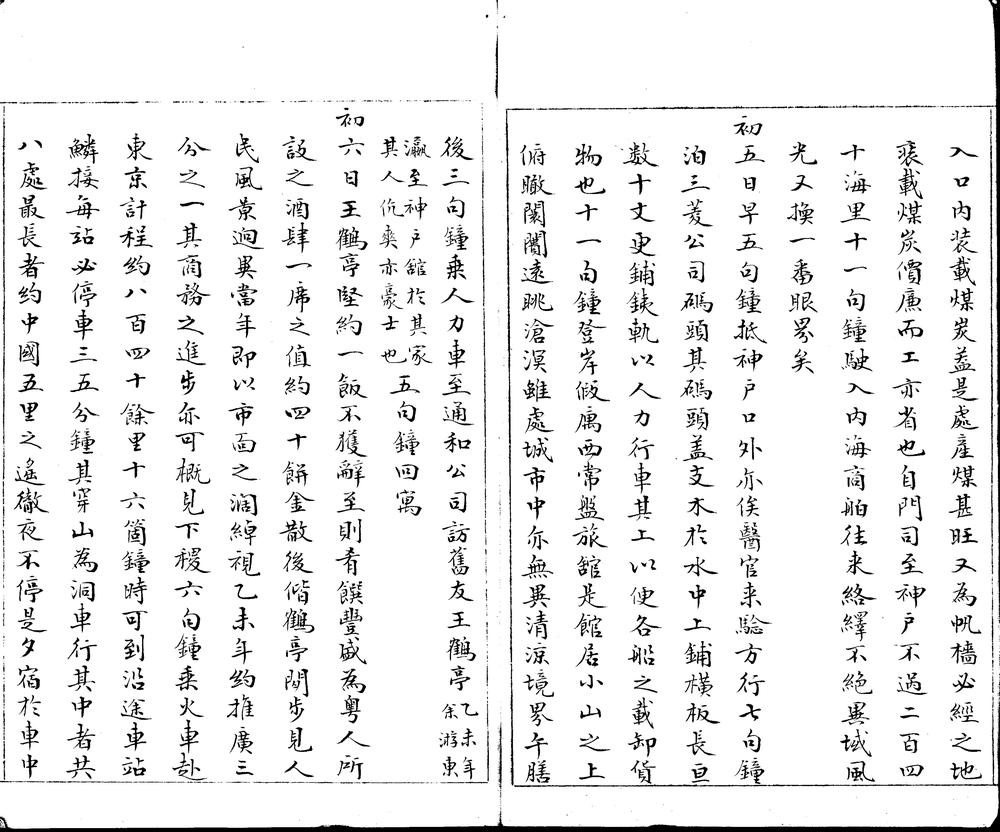 入口內装載煤炭葢是處產煤甚旺又為帆檣必經之地
裝載煤炭價廉而工亦省也自門司至神戶不過二百四
十海里十一句鐘駛入內海商舶往来絡繹不絕異域風
光又換一番眼界矣
初五日早五句鐘抵神戶口外亦俟醫官来驗方行七句鐘
泊三菱公司碼頭其碼頭盖支木於水中上鋪橫板長亘
数十丈更鋪鉄軌以人力行車其上以便各船之載卸貨
物也十一句鐘登岸假寓西常盤旅舘是館居小山之上
俯瞰闤闠遠眺滄溟雖處城市中亦無異清涼境界午膳
後三句鐘乗人力車至通和公司訪舊友王鶴亭乙未年余游東
瀛至神戶舘於其家其人伉爽亦豪士也五句鐘回寓
初六日王鶴亭堅約一飯不獲辭至則肴饌豐盛為粤人所
設之酒肆一席之值約四十餅金散後偕鶴亭閒步見人
民風景逈異當年即以市面之濶綽視乙未年約推廣三
分之一其商務之進步亦可概見下稷六句鐘乗火車赴
東京計程約八百四十餘里十六箇鐘時可到沿途車站
鱗接每站必停車三五分鐘其穿山為洞車行其中者共
八處最長者約中國五里之遙徹夜不停是夕宿於車中